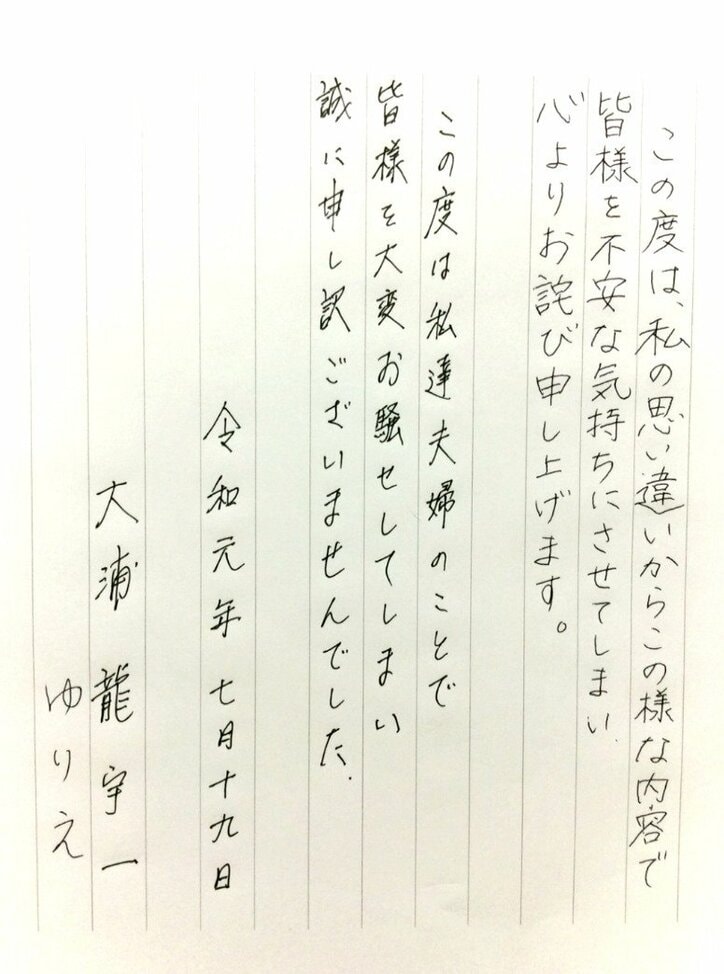 この度は、私の思い違いからこの様な内容で
皆様を不安な気持ちにさせてしまい、
心よりお詫び申し上げます。
この度は私達夫婦のことで
皆様を大変お騒せしてしまい
誠に申し訳ございませんでした.
令和元年七月十九日
大浦龍宇一
ゆりえ